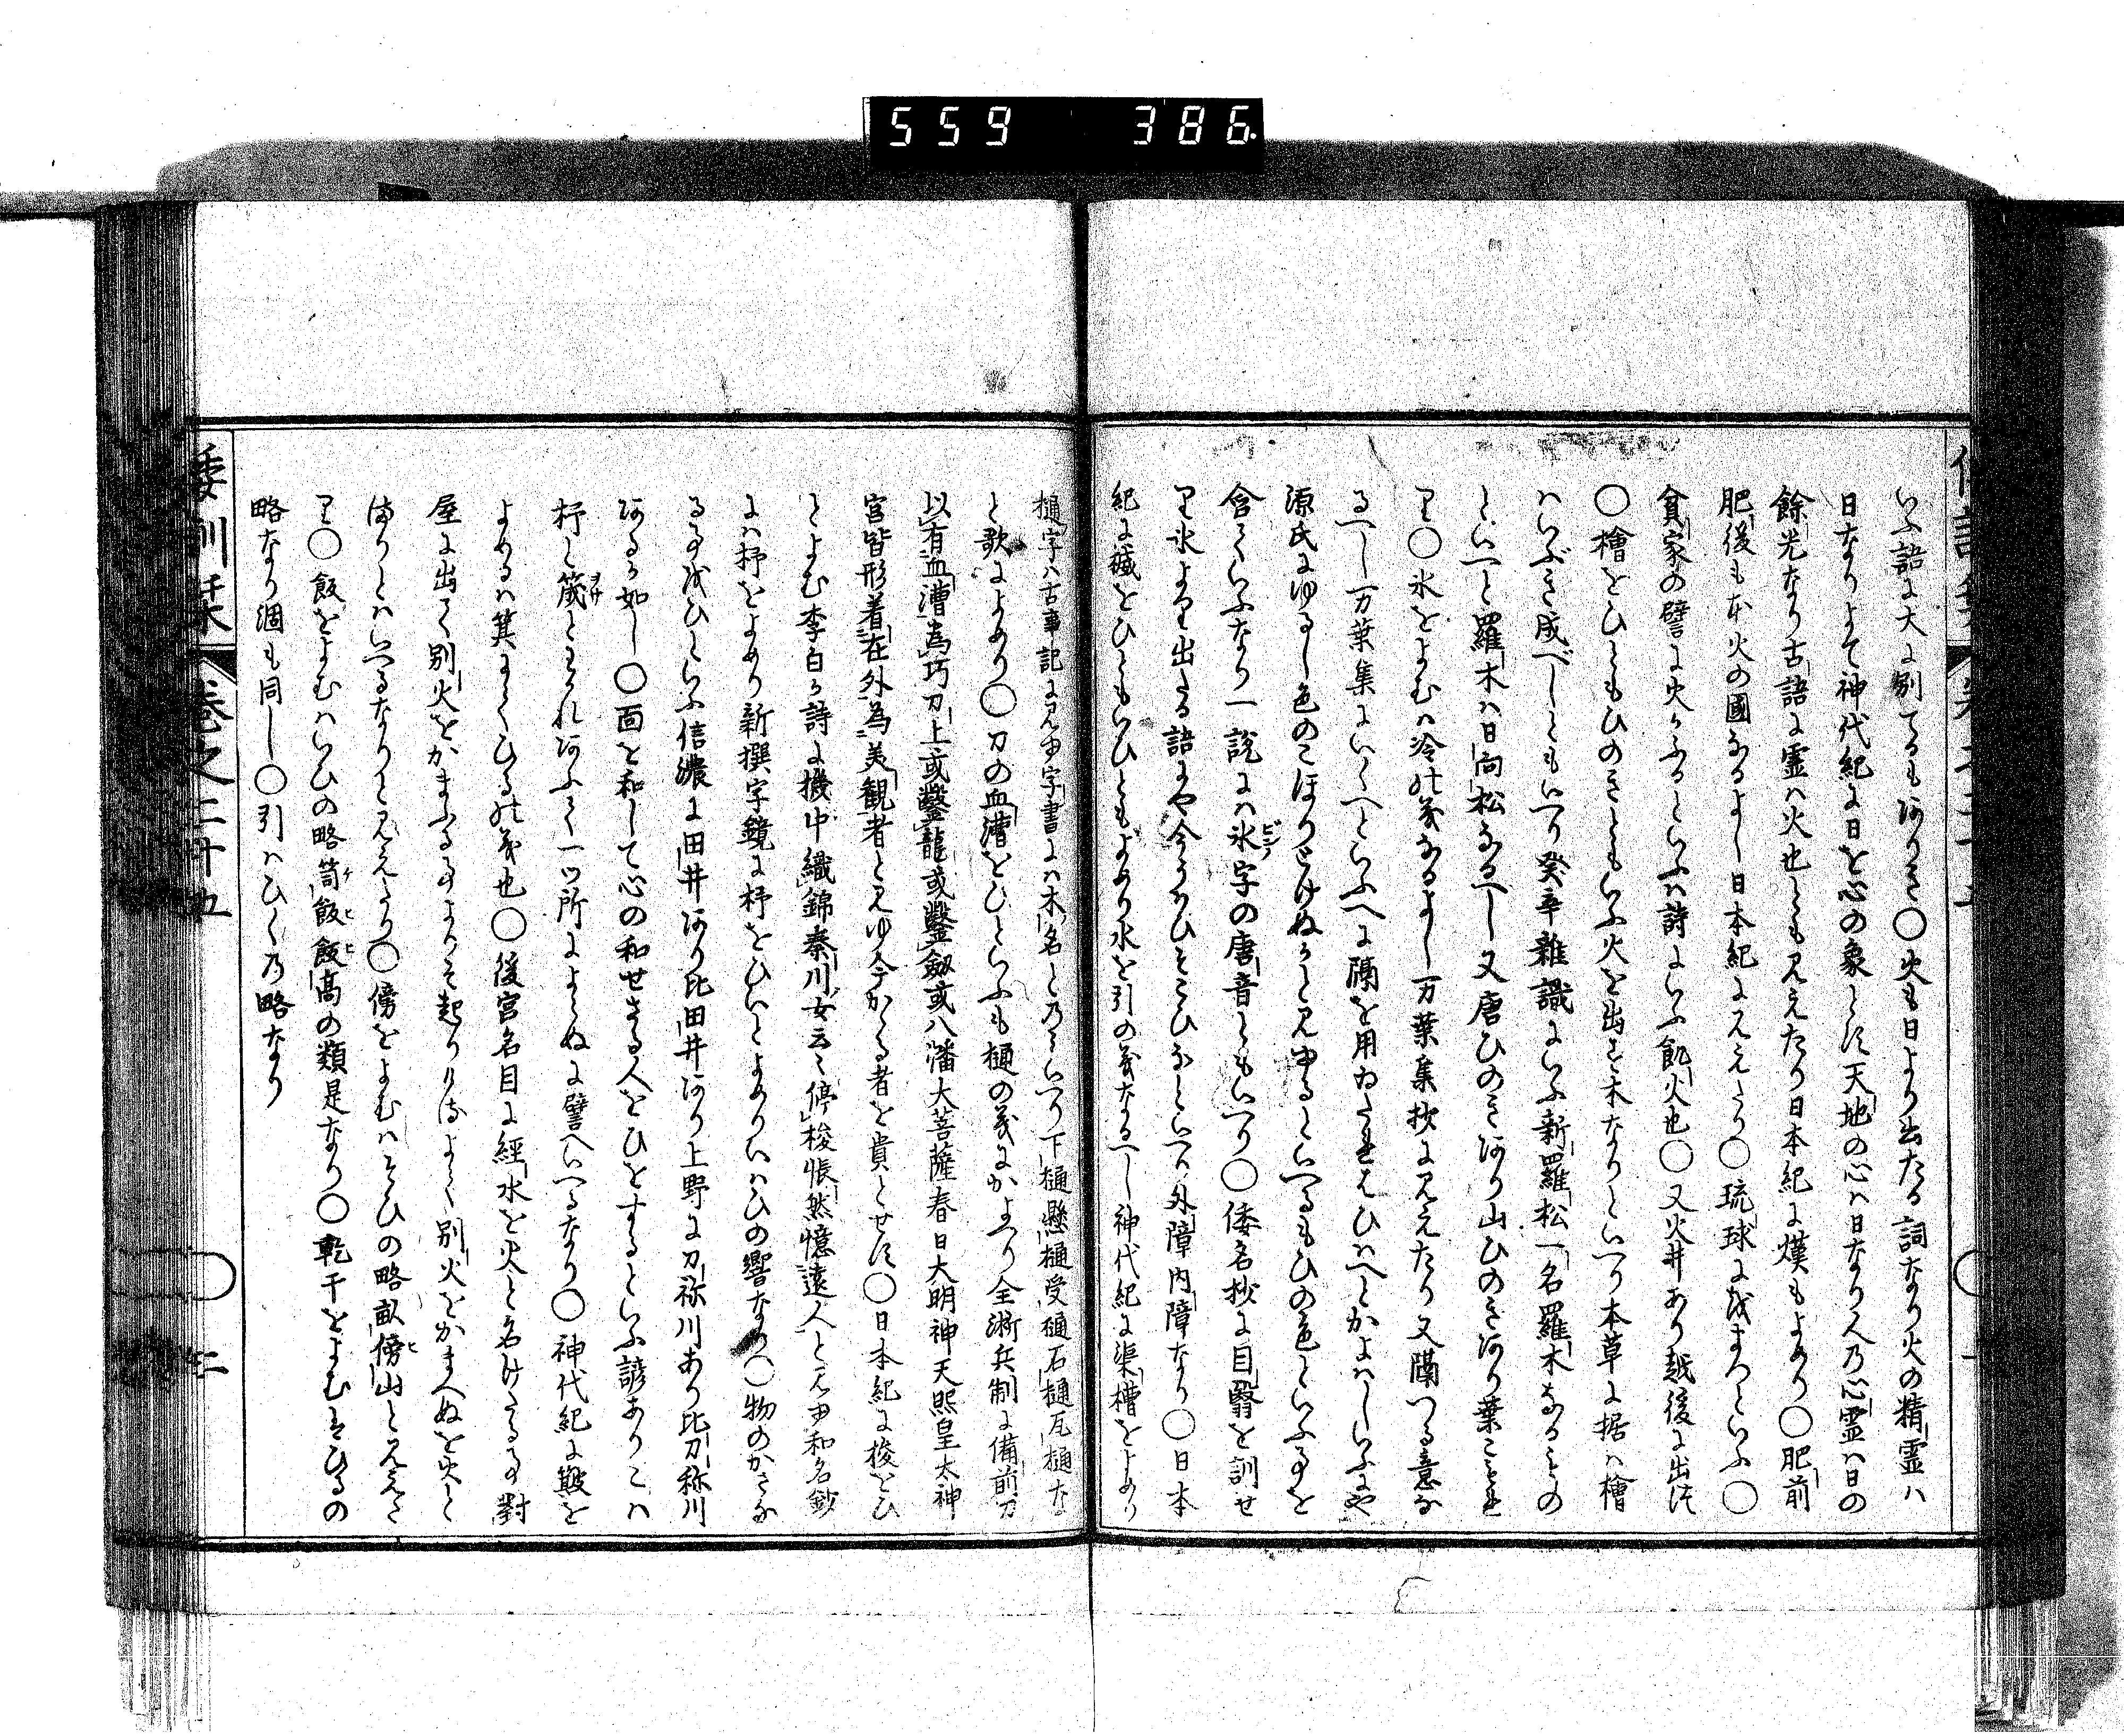 559 386
いふ語に大に別てるもありき〇火も日より出たる詞なり火の精霊ハ
日なりよて神代紀に日を心の象とす天地の心ハ日なり人乃心霊ハ日の
餘光なり古語に霊ハ火也とも見えたり日本紀に熯もよめり〇肥前
肥後もと火の國なるよし日本紀に見えたり〇琉球に城まつといふ〇
貧家の譬に火かふるといふハ詩にいふ飢火也〇又火井あり越後に出す
〇檜をひともひのきともいふ火を出す木なりといへり本草に据ハ檜
ハいぶき成べしともいへり癸辛雜識にいふ新羅松一名羅木なるものと
といへと羅木ハ日向松なるへし又唐ひのきあり山ひのきあり葉こまか
り〇氷をよむハ冷の義なるよし万葉集抄に見えたり又隔つる意な
るへし万葉集にいくへといふへに隔を用ゐたれはひハへとかよハしいふにや
源氏にゆるし色のこほりとけぬかと見ゆるといへるもひの色といふ事を
含くいふなり一説にハ氷字の唐音ともいへり〇倭名抄に目翳を訓せ
り氷より出たる語にや今うはひそこひなといへり外障内障なり〇日本
紀に楲をひともいひともよめり水を引の義なるへし神代紀に渠槽をよめり
樋字ハ古事記に見ゆ字書にハ木名と乃みいへり下樋懸樋受樋石樋瓦樋な
と歌によめり〇刀の血漕をひといふも樋の義にかよへり全浙兵制に備前刀
以有血漕為巧刀上或鑿龍或鑿劔或八潘大菩薩春日大明神天照皇太神
宮皆形着在外為美観者と見ゆ今かくる者を貴とせす〇日本紀に梭をひ
とよむ李白か詩に機中織錦秦川女云〻停梭悵然憶遠人と見ゆ和名鈔
にハ杼をよめり新撰字鏡に杼をひいとよめりいハひの響なり〇物のかさな
る事をひといふ信濃に田井あり比田井あり上野に刀祢川あり比刀祢川
あるか如し〇面を和して心の和せさる人をひをするといふ諺ありこハ
杼と筬とわかれあふて一ツ所によらぬに譬へいへるなり〇神代紀に皸を
よめるハ箕によくひるの義也〇後宮名目に經水を火と名けたる事對
屋に出て別火をかまふる事よりそ起りけるよく別火をかまへぬを火と
まりとハいへるなりと見えたり〇傍をよむハそひの略畝傍山と見えた
り〇飯をよむハいひの略筒飯飯高の類是なり〇乾干をよむもひるの
略なり涸も同し〇引ハひく乃略なり
倭訓栞 卷之二十五 〇 二